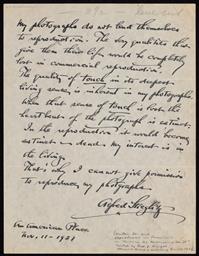 My photographs do not lend themselves
to reproduction. The very qualities that
give them their life would be completely
lost in commercial reproduction.
The quality of touch in its deepest
living sense is inherent in my photographs.
When that sense of touch is lost the
heartbeat of the photograph is extinct.
In the reproduction it would become
extinct — dead. My interest is in
the living.
That's why I cannot give permission
to reproduce my photographs.
Alfred Stieglitz
An American Place
Nov. 11 - 1931